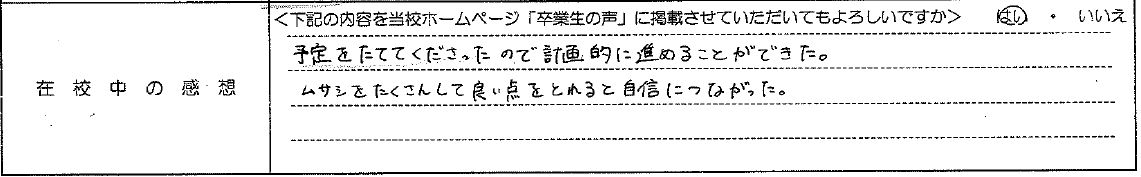 <下記の内容を当校ホームページ「卒業生の声」に掲載させていただいてもよろしいですか> はい ・ いいえ
在校中の感想
予定をたててくださったので計画的に進めることができた。
ムサシをたくさんして良い点をとれると自信につながった。